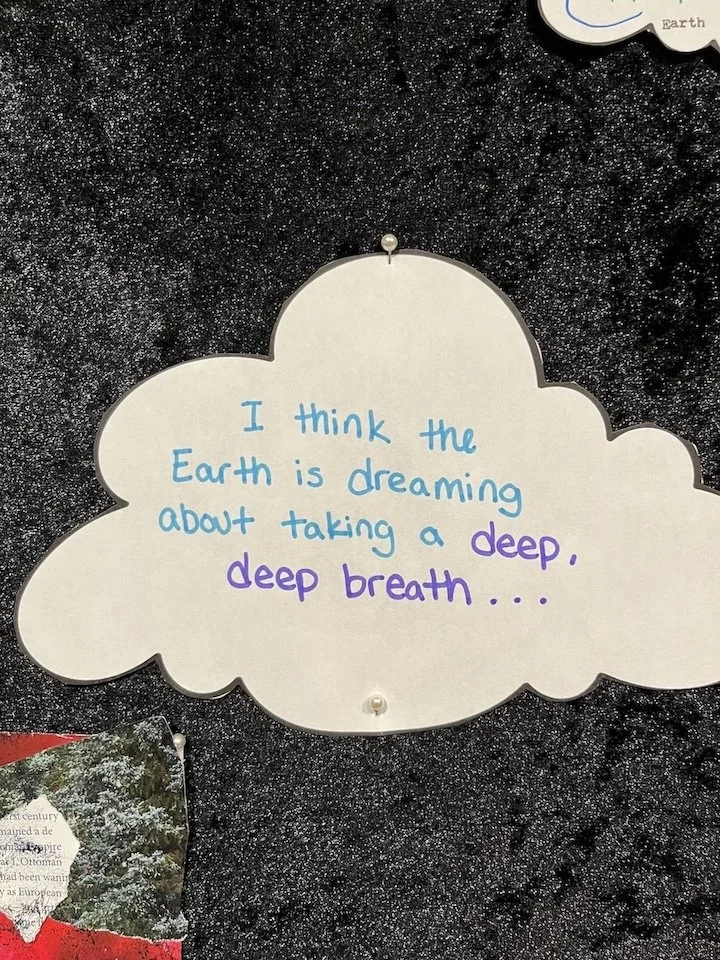 Earth
I think the
Earth is dreaming
about taking a deep,
deep breath...
erst century
mained a de
Empire
Ottoman
had been wanin
y as European